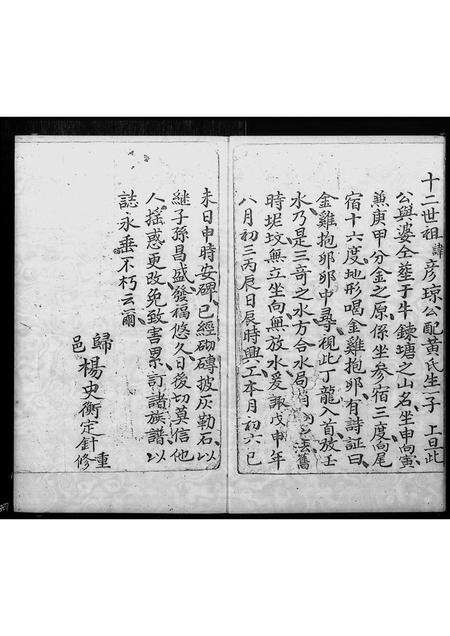 十二世祖諱彦琼公配黄氏生一子 上旦此
公與婆仝塟于牛錬塘之山名坐申向寅
兼庚甲分金之原係坐参宿三度向尾
宿十六度地形喝金雞抱卵有詩証曰
金雞抱卵卵中尋視此丁龍入首放壬
水乃是三竒之水方合水局 舊
時坭坟無立坐向無放水爰諏戊申年
八月初三丙辰日辰時興工本月初六己
未日申時安碑已經砌磚披灰勒石以
継子孫昌盛發福悠久日後切莫信他
人揺惑更改免致害累訂諸族譜以
誌永垂不朽云爾
歸邑楊史衡定針重修